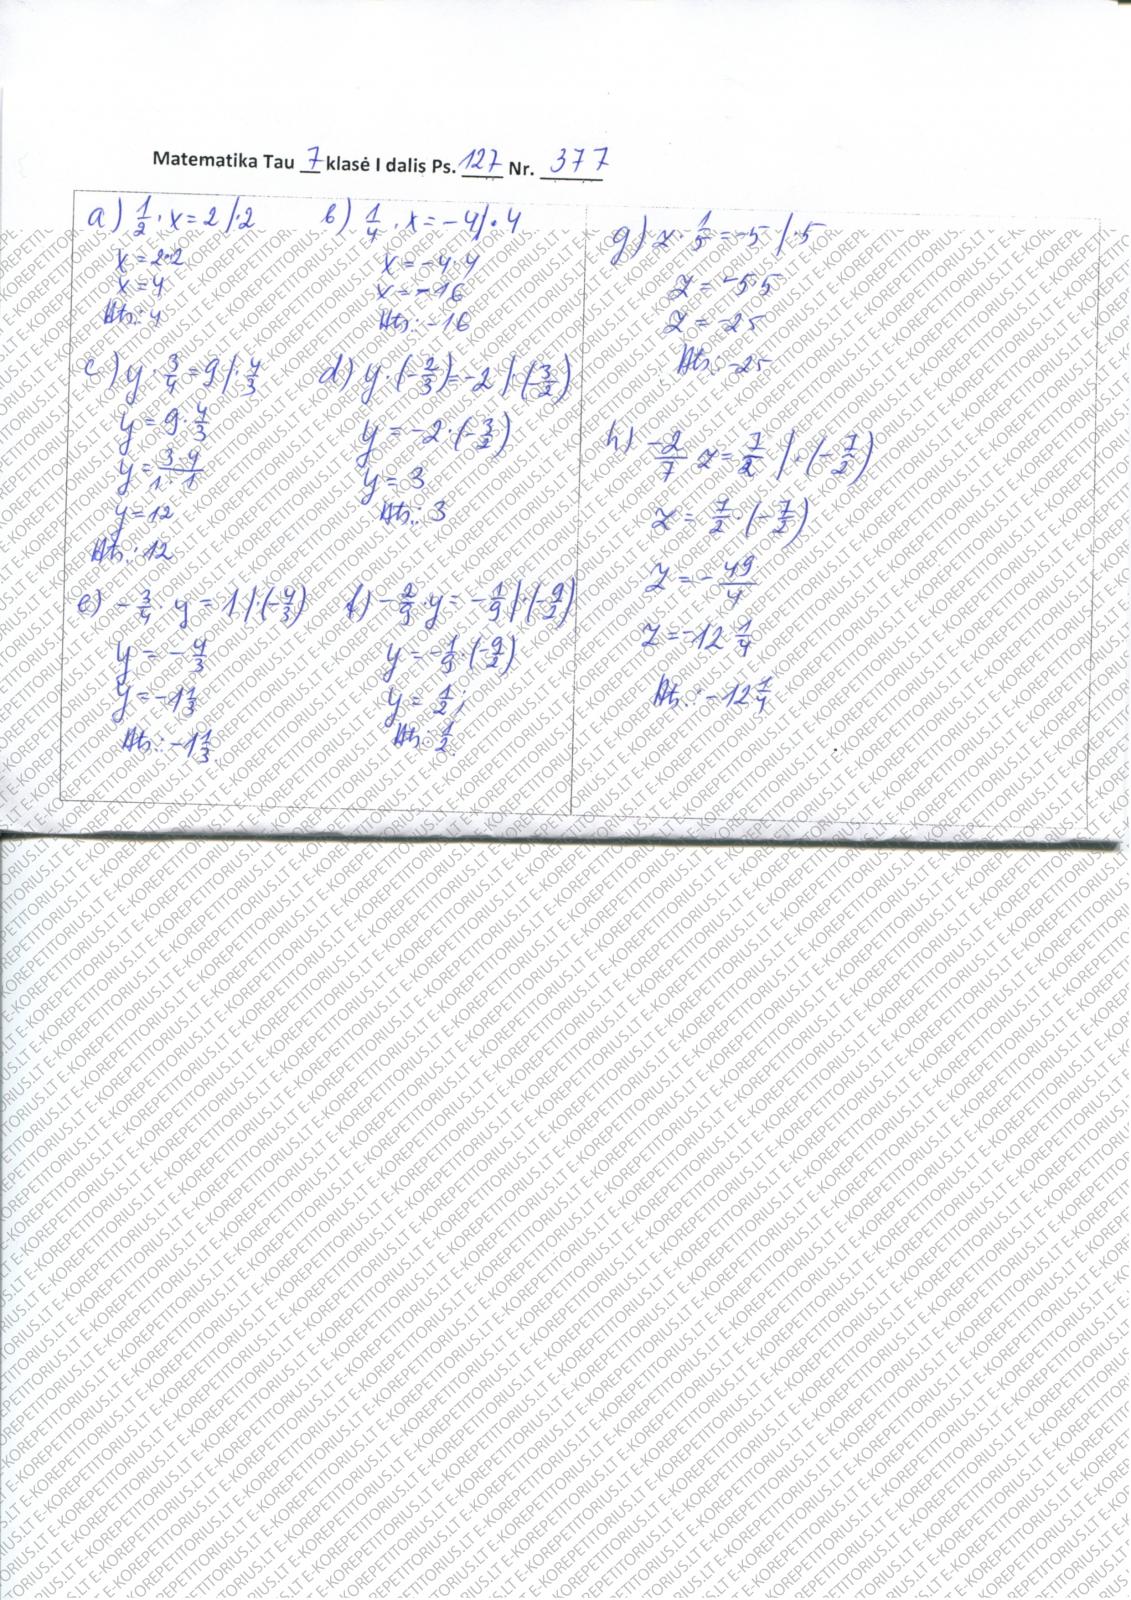 Matematika Tau 7 klasė I dalis Ps. 127 Nr. 377
a) 1/2 · x = 2 /· 2
x = 2·2
x = 4
Ats.: 4
b) 1/4 · x = -4 /· 4
x = -4·4
x = -16
Ats.: -16
c) y · 3/4 = 9 /· 4/3
y = 9 · 4/3
y = 3·4/1·1
y = 12
Ats.: 12
d) y · (-2/3) = -2 /· (-3/2)
y = -2 · (-3/2)
y = 3
Ats.: 3
e) -3/4 · y = 1 /· (-4/3)
y = -4/3
y = -1 1/3
Ats.: -1 1/3
f) -2/9 · y = -1/9 /· (-9/2)
y = -1/9 · (-9/2)
y = 1/2;
Ats.: 1/2.
g) z · 1/5 = -5 /· 5
z = -5·5
z = -25
Ats.: -25
h) -2/7 z = 7/2 /· (-7/2)
z = 7/2 · (-7/2)
z = -49/4
z = -12 1/4
Ats.: -12 1/4
E-KOREPETITORIUS.LT